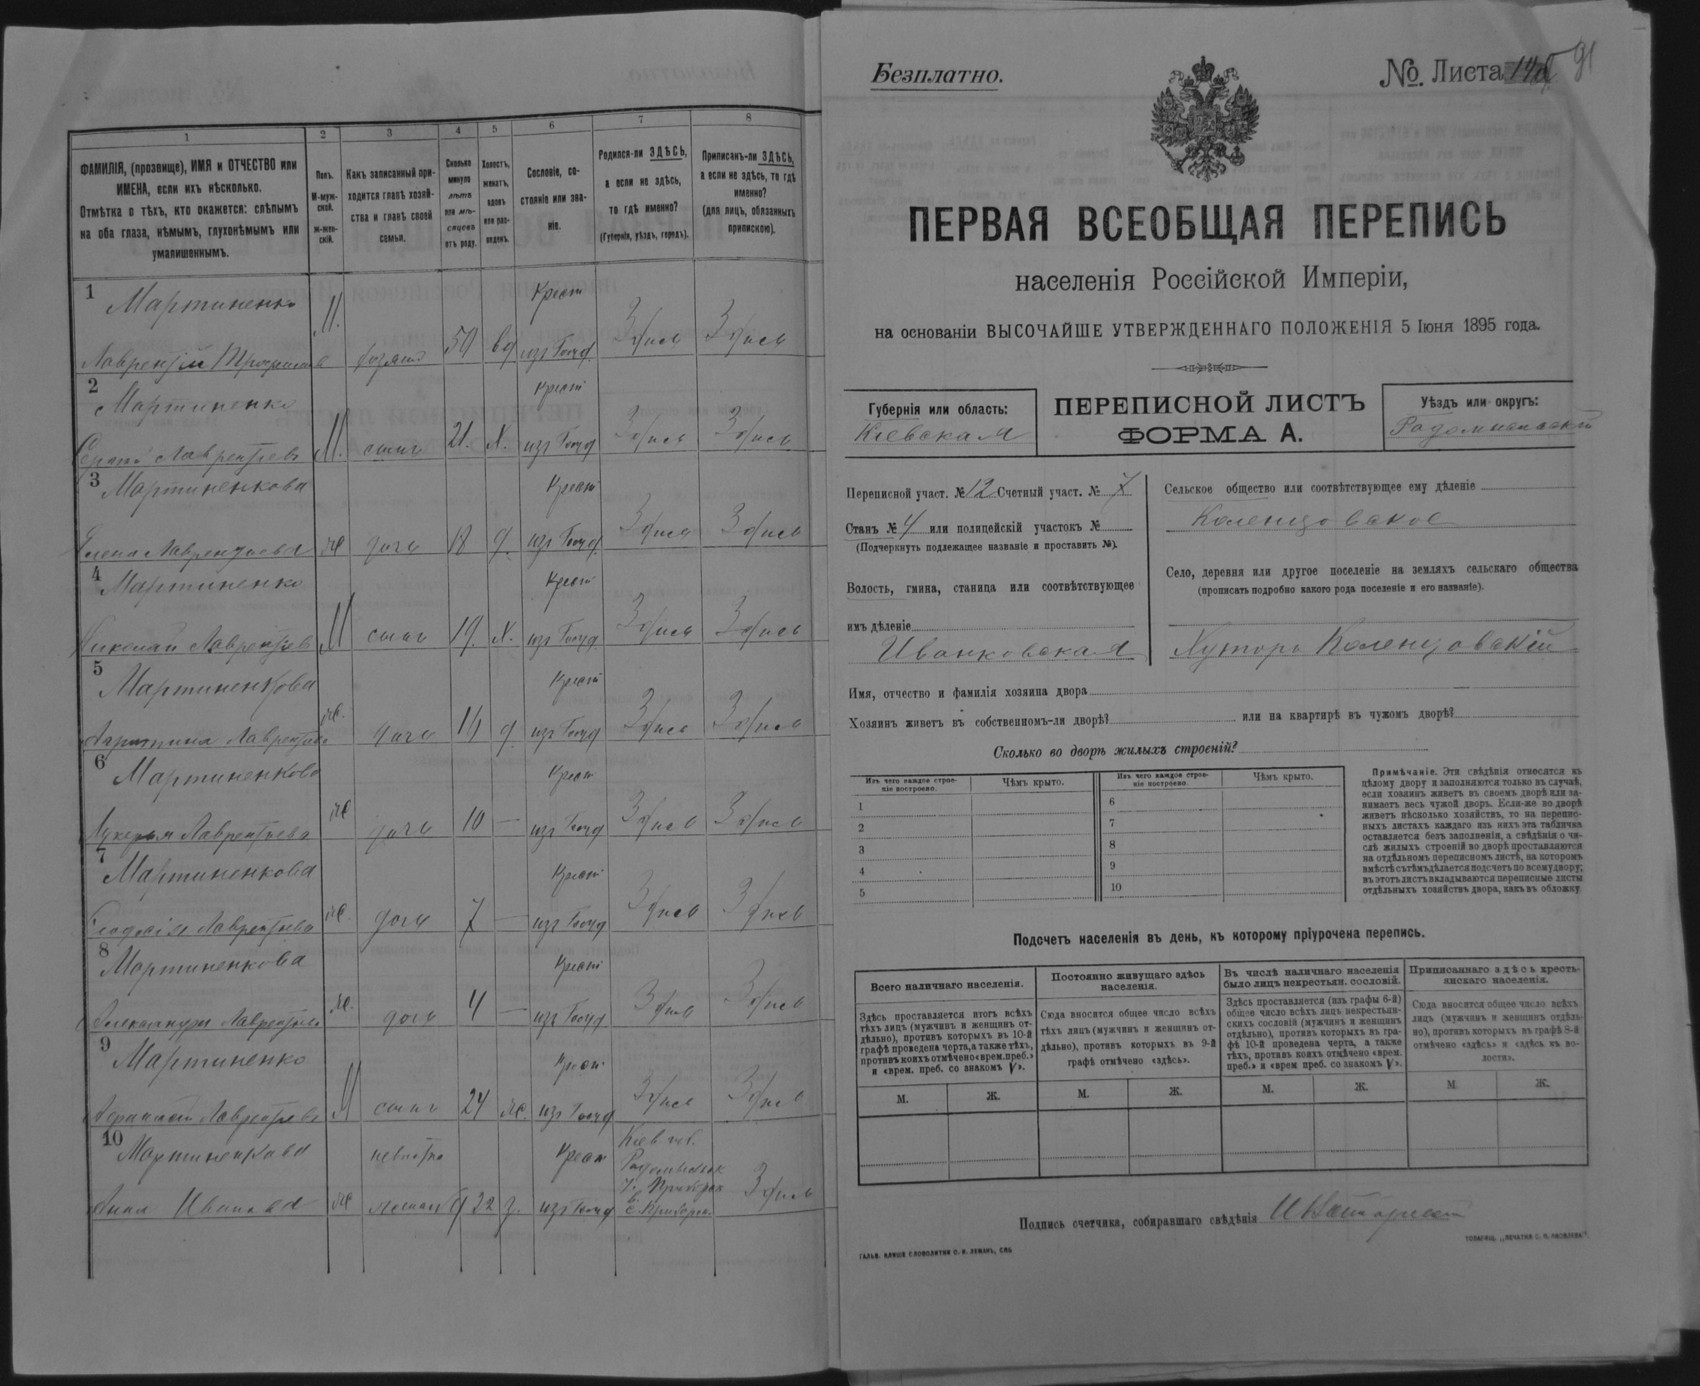 1 2 3 4 5 6 7 8
ФАМИЛІЯ, (прозвище), ИМЯ и ОТЧЕСТВО или
ИМЕНА, если ихъ нѣсколько.
Отмѣтка о тѣхъ, кто окажется: слѣпымъ
на оба глаза, нѣмымъ, глухонѣмымъ или
умалишеннымъ.
Полъ.
М-муж-
ской.
Ж-жен-
скій.
Какъ записанный при-
ходится главѣ хозяй-
ства и главѣ своей
семьи.
Сколько
минуло
лѣтъ
или мѣ-
сяцевъ
отъ роду.
Холостъ,
женатъ,
вдовъ
или раз-
веденъ.
Сословіе, со-
стояніе или зва-
ніе.
Родился-ли ЗДѢСЬ,
а если не здѣсь,
то гдѣ именно?
(Губернія, уѣздъ, городъ).
Приписанъ-ли ЗДѢСЬ,
а если не здѣсь, то гдѣ
именно?
(для лицъ, обязанныхъ
припискою).
1 Мартиненко М. Крест
Лаврентій хозяинъ 59 вд изъ Госуд. Здѣсь Здѣсь
2 Мартиненко Крест
Лаврентіевъ М. сынъ 21. Х. изъ Госуд Здѣсь Здѣсь
3 Мартиненкова Крест
Елена Лаврентьева Ж дочь 18 д. изъ Госуд. Здѣсь Здѣсь
4 Мартиненко Крест
Николай Лаврентіевъ М сынъ 19. Х. изъ Госуд Здѣсь Здѣсь
5 Мартиненкова Крест
Лаврентіева Ж. дочь 14 д. изъ Госуд Здѣсь Здѣсь
6 Мартиненкова Крест
Лукерія Лаврентіева Ж дочь 10 — изъ Госуд Здѣсь Здѣсь
7 Мартиненкова Крест
Феодосія Лаврентіева Ж. дочь 7 — изъ Госуд Здѣсь Здѣсь
8 Мартиненкова Крест
Александра Лаврентіева Ж. дочь 4 — изъ Госуд Здѣсь Здѣсь
9 Мартиненко Крест
Лаврентіевъ М сынъ 24 Ж. изъ Госуд Здѣсь Здѣсь
10 Мартиненкова невѣстка Крест Кіев губ.
Анна Иванова Ж 22 З. изъ Госуд Здѣсь
Безплатно.
№. Листа 91
ПЕРВАЯ ВСЕОБЩАЯ ПЕРЕПИСЬ
населенія Россійской Имперіи,
на основаніи ВЫСОЧАЙШЕ УТВЕРЖДЕННАГО ПОЛОЖЕНІЯ 5 Іюня 1895 года.
Губернія или область:
Кіевская
ПЕРЕПИСНОЙ ЛИСТЪ
ФОРМА А.
Уѣздъ или округъ:
Радомысльскій
Переписной участ. № 12 Счетный участ. № X
Станъ № 4 или полицейскій участокъ №
(Подчеркнуть подлежащее названіе и проставить №).
Волость, гмина, станица или соотвѣтствующее
имъ дѣленіе
Иванковская
Сельское общество или соотвѣтствующее ему дѣленіе
Коленцовское
Село, деревня или другое поселеніе на земляхъ сельскаго общества
(прописать подробно какого рода поселеніе и его названіе).
Хуторъ Коленцовскій
Имя, отчество и фамилія хозяина двора
Хозяинъ живетъ въ собственномъ-ли дворѣ? или на квартирѣ въ чужомъ дворѣ?
Сколько во дворѣ жилыхъ строеній?
Изъ чего каждое строе-
ніе построено.
Чѣмъ крыто.
Изъ чего каждое строе-
ніе построено.
Чѣмъ крыто.
1 6
2 7
3 8
4 9
5 10
Примѣчаніе. Эти свѣдѣнія относятся къ
цѣлому двору и заполняются только въ случаѣ,
если хозяинъ живетъ въ своемъ дворѣ или за-
нимаетъ весь чужой дворъ. Если-же во дворѣ
живетъ нѣсколько хозяйствъ, то на перепис-
ныхъ листахъ каждаго изъ нихъ эта табличка
оставляется безъ заполненія, а свѣдѣнія о чи-
слѣ жилыхъ строеній во дворѣ проставляются
на отдѣльномъ переписномъ листѣ, на которомъ
вмѣстѣ съ тѣмъ дѣлается подсчетъ по всему двору;
въ этотъ листъ вкладываются переписные листы
отдѣльныхъ хозяйствъ двора, какъ въ обложку.
Подсчетъ населенія въ день, къ которому пріурочена перепись.
Всего наличнаго населенія.
Здѣсь проставляется итогъ всѣхъ
тѣхъ лицъ (мужчинъ и женщинъ от-
дѣльно), противъ которыхъ въ 10-й
графѣ проведена черта, а также тѣхъ,
противъ коихъ отмѣчено «врем. преб.»
и «врем. преб. со знакомъ V».
Постоянно живущаго здѣсь
населенія.
Сюда вносится общее число всѣхъ
тѣхъ лицъ (мужчинъ и женщинъ от-
дѣльно), противъ которыхъ въ 9-й
графѣ отмѣчено «здѣсь».
Въ числѣ наличнаго населенія
было лицъ некрестьян. сословій.
Здѣсь проставляется (изъ графы 6-й)
общее число всѣхъ лицъ некрестьян-
скихъ сословій (мужчинъ и женщинъ
отдѣльно), противъ которыхъ въ гра-
фѣ 10-й проведена черта, а также
тѣхъ, противъ коихъ отмѣчено «врем.
преб.» и «врем преб. со знакомъ V».
Приписаннаго здѣсь кресть-
янскаго населенія.
Сюда вносится общее число всѣхъ
лицъ (мужчинъ и женщинъ отдѣль-
но), противъ которыхъ въ графѣ 8-й
отмѣчено «здѣсь» и «здѣсь въ во-
лости».
М. Ж. М. Ж. М. Ж. М. Ж.
Подпись счетчика, собиравшаго свѣдѣнія
ГАЛЬВ. КЛИШЕ СЛОВОЛИТНИ О. И. ЛЕМАНЪ, СПБ
ТОВАРИЩ. „ПЕЧАТНЯ С. П. ЯКОВЛЕВА“.